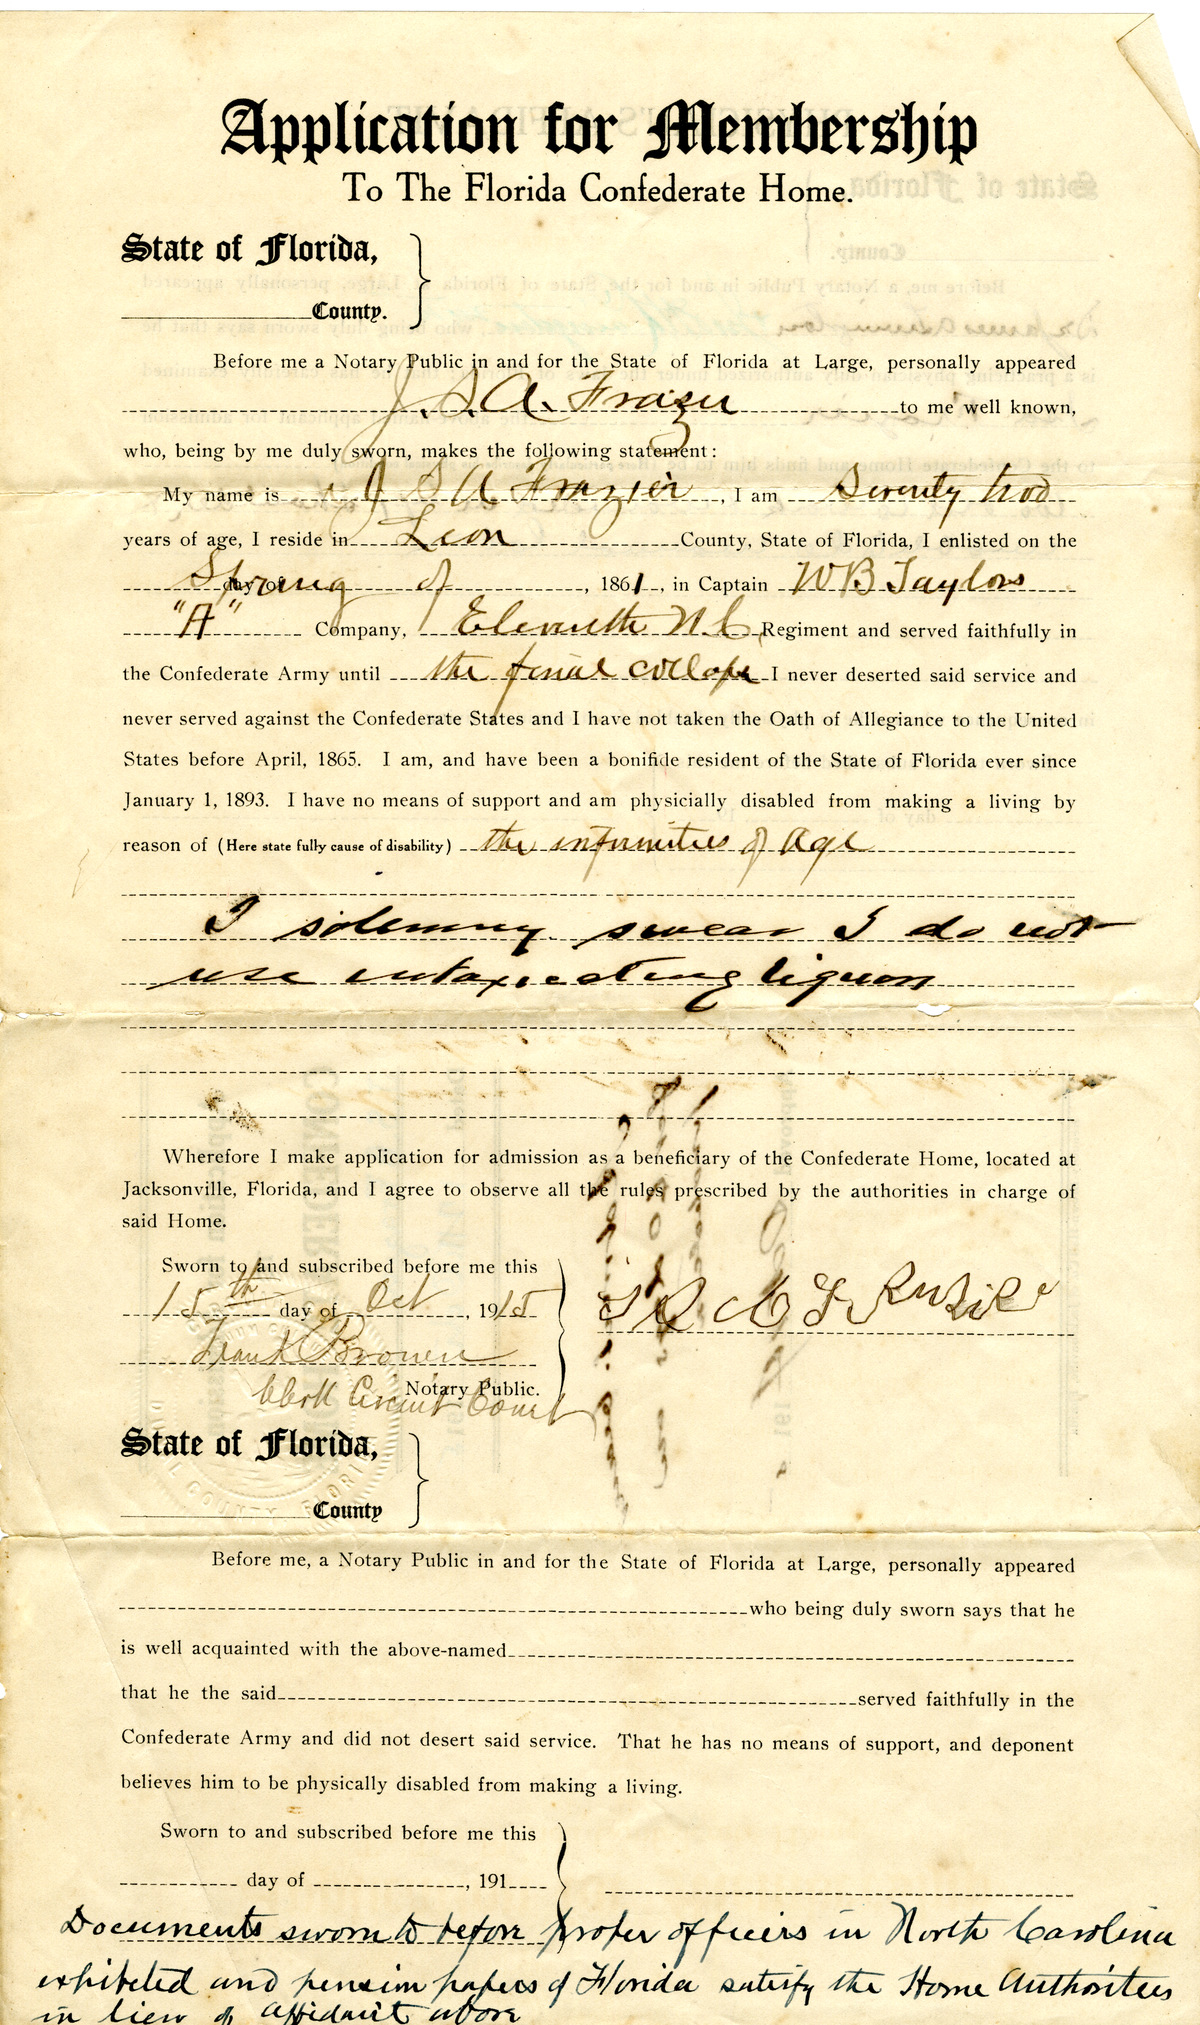 Application for Membership
To The Florida Confederate Home.
State of Florida,
County.
Before me a Notary Public in and for the State of Florida at Large, personally appeared
J. S. A. Frazier to me well known,
who, being by me duly sworn, makes the following statement:
My name is J S A Frazier, I am Seventy two
years of age, I reside in Leon County, State of Florida, I enlisted on the
Spring day of of, 1861, in Captain W B Taylors
"A" Company, Eleventh N. C. Regiment and served faithfully in
the Confederate Army until the final collapse I never deserted said service and
never served against the Confederate States and I have not taken the Oath of Allegiance to the United
States before April, 1865. I am, and have been a bonifide resident of the State of Florida ever since
January 1, 1893. I have no means of support and am physicially disabled from making a living by
reason of (Here state fully cause of disability) the infirmities of age
I solemny swear I do not
use intoxicating liquor
Wherefore I make application for admission as a beneficiary of the Confederate Home, located at
Jacksonville, Florida, and I agree to observe all the rules prescribed by the authorities in charge of
said Home.
Sworn to and subscribed before me this
15th day of Oct, 1915
J S A Frazier
Frank Brown
Notary Public.
Clerk Circuit Court
State of Florida,
County
Before me, a Notary Public in and for the State of Florida at Large, personally appeared
who being duly sworn says that he
is well acquainted with the above-named
that he the said served faithfully in the
Confederate Army and did not desert said service. That he has no means of support, and deponent
believes him to be physically disabled from making a living.
Sworn to and subscribed before me this
day of , 191
Documents sworn to before proper officers in North Carolina
exhibited and pension papers of Florida satisfy the Home Authorities
in lieu of affidavit above